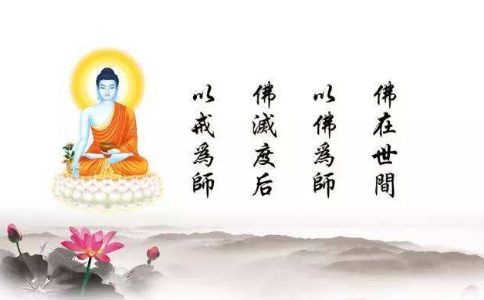 佛在世間
以佛為師
佛滅度后
以戒為師